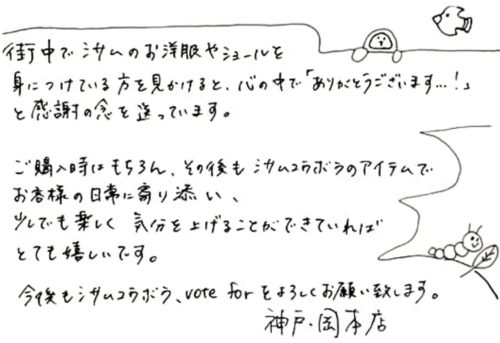 街中でシサムのお洋服やショールを
身につけている方を見かけると、心の中で「ありがとうございます…！」
と感謝の念を送っています。
ご購入時はもちろん、その後もシサムコラボラのアイテムで
お客様の日常に寄り添い、
少しでも楽しく気分を上げることができていれば
とても嬉しいです。
今後もシサムコラボラ、vote forをよろしくお願い致します。
神戸・岡本店